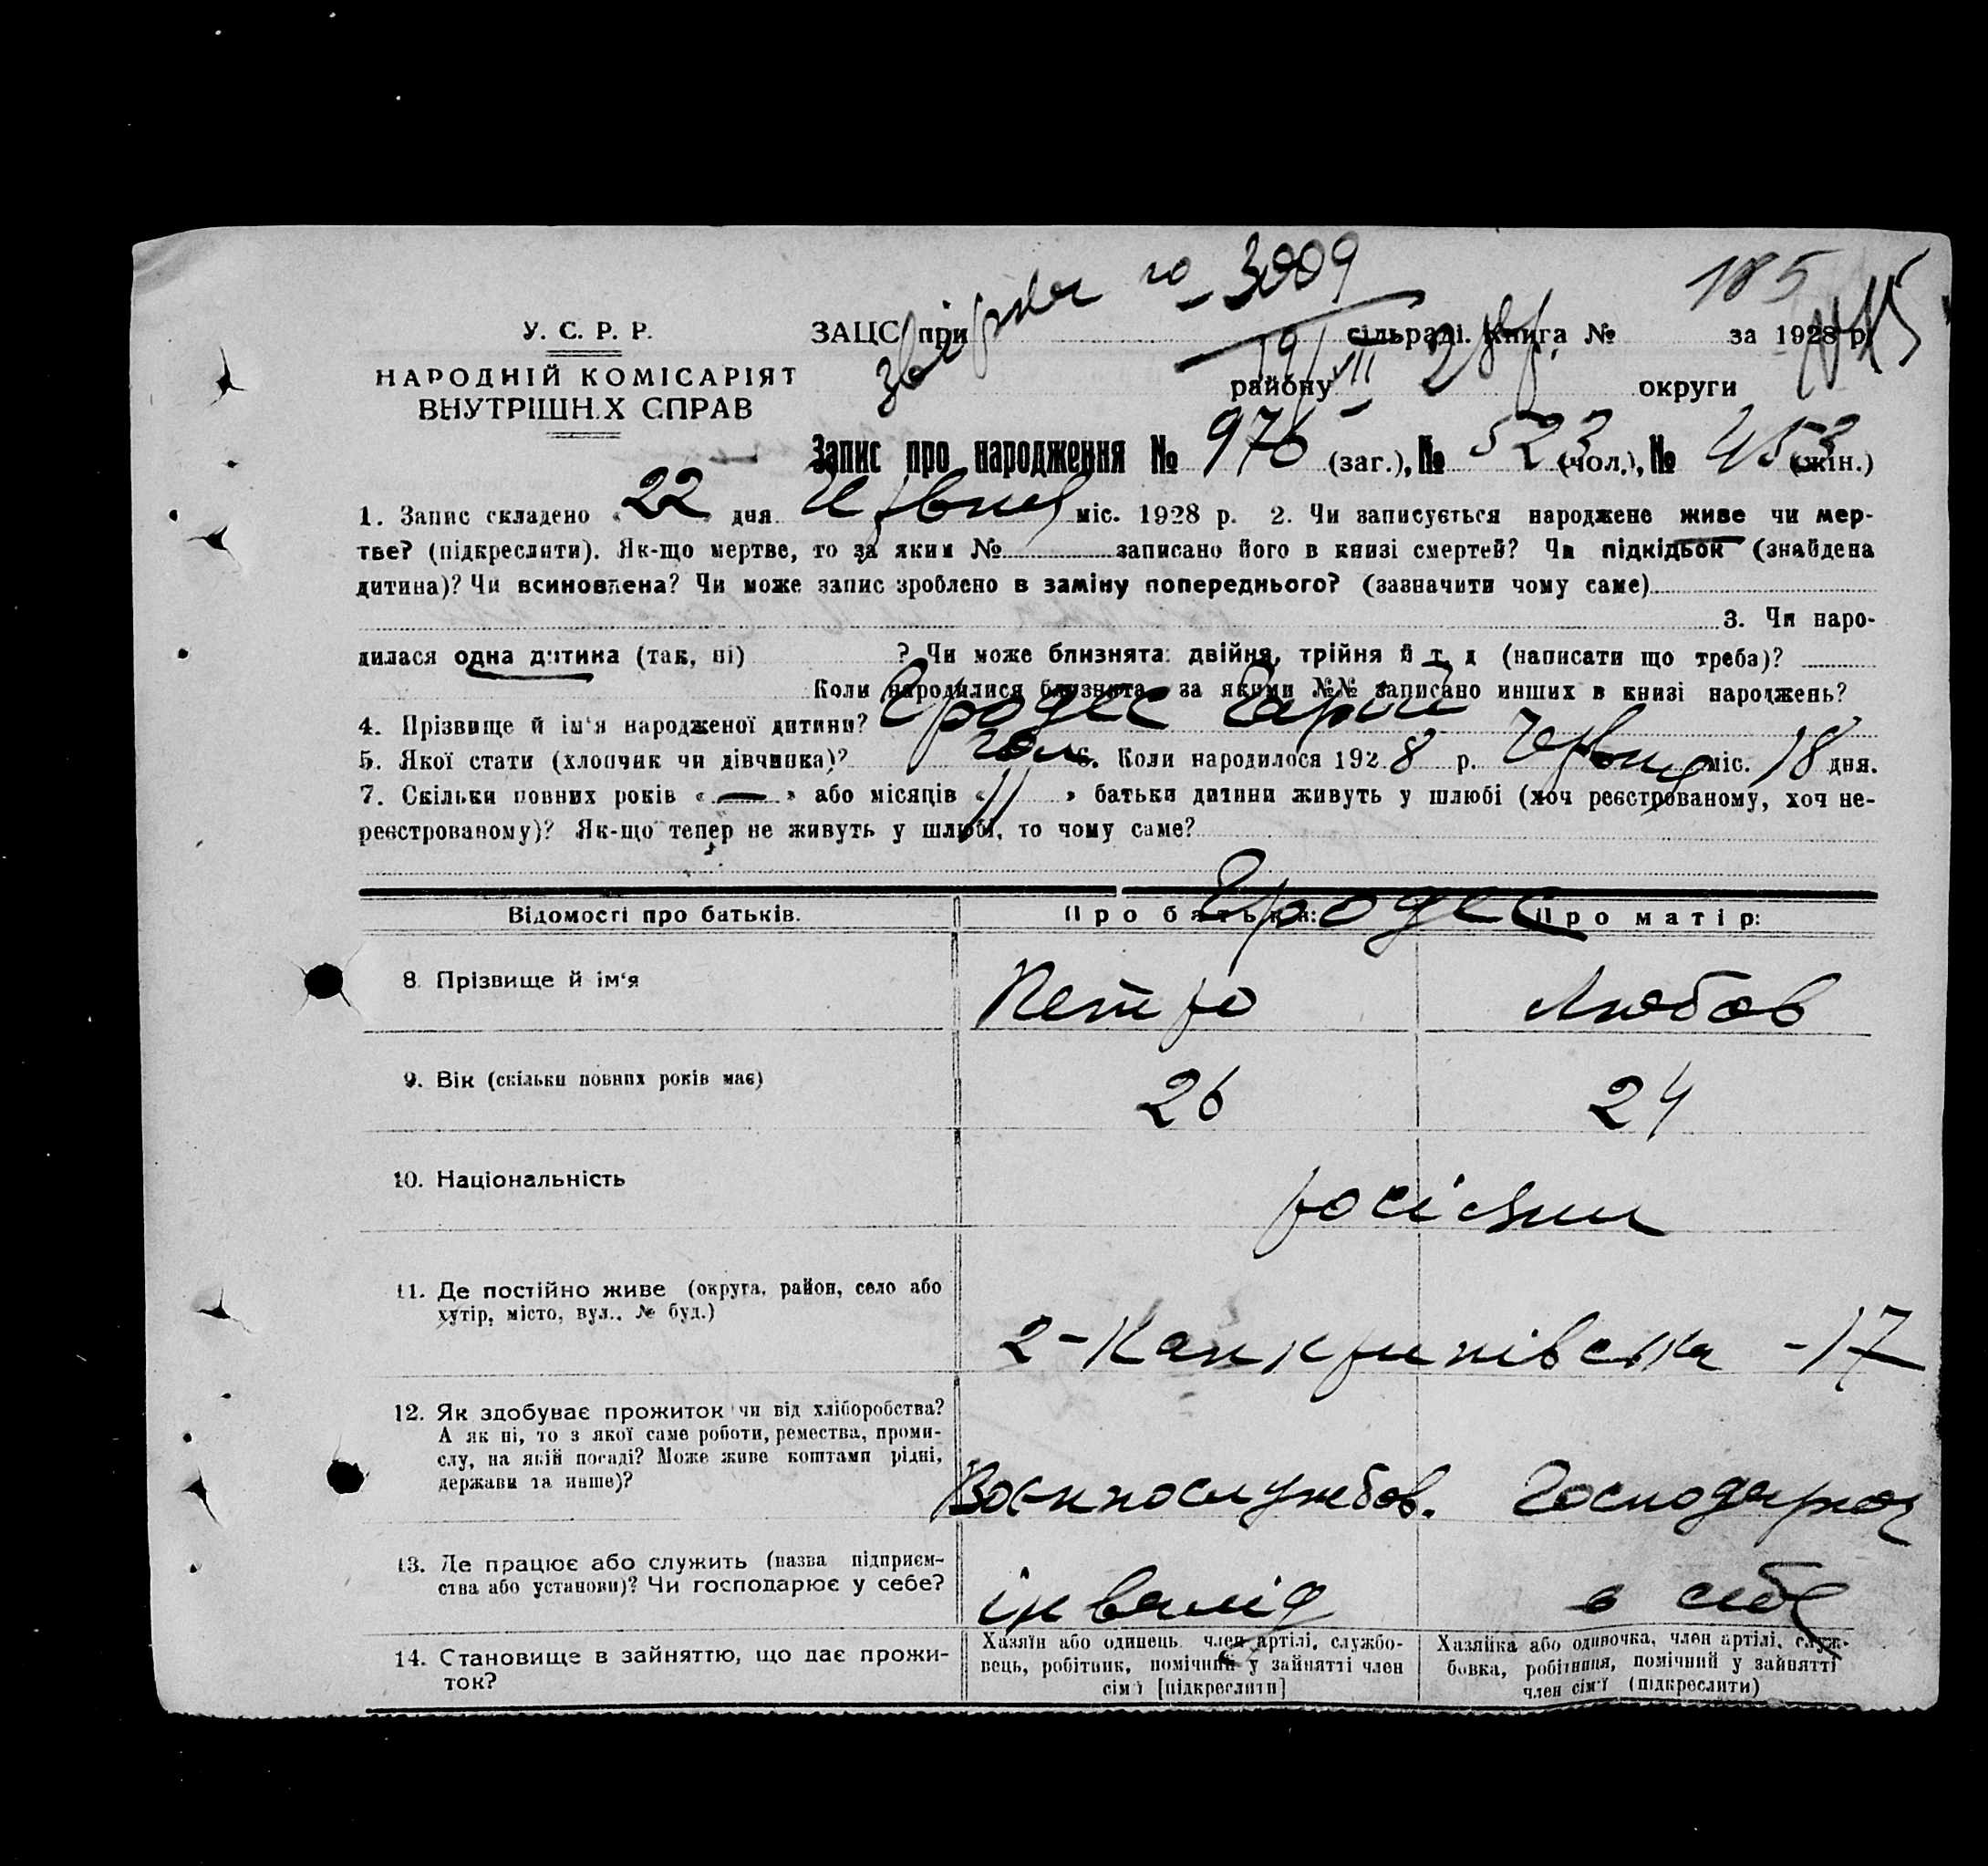 185
№ 3909
У. С. Р. Р.
ЗАЦС при сільраді. Книга № за 1928 р.
НАРОДНІЙ КОМІСАРІЯТ
ВНУТРІШНІХ СПРАВ
району округи
19/VII 28 р.
Запис про народження № 976 (заг.), № 523 (чол.), № 453 (жін.)
1. Запис складено «22» дня Червня міс. 1928 р. 2. Чи записується народжене живе чи мер-
тве? (підкреслити). Як-що мертве, то за яким № записано його в книзі смертей? Чи підкідьок (знайдена
дитина)? Чи всиновлена? Чи може запис зроблено в заміну попереднього? (зазначити чому саме)
3. Чи наро-
дилася одна дитина (так, ні) ? Чи може близнята: двійня, трійня й т. д (написати що треба)?
Коли народилися близнята, за якими №№ записано инших в книзі народжень?
4. Прізвище й ім'я народженої дитини?
5. Якої стати (хлопчик чи дівчинка)? чол. 6. Коли народилося 1928 р. Червня міс. 18 дня.
7. Скільки повних років «—» або місяців «11» батьки дитини живуть у шлюбі (хоч реєстрованому, хоч не-
реєстрованому)? Як-що тепер не живуть у шлюбі, то чому саме?
Відомості про батьків. Про батька: Про матір:
8. Прізвище й ім'я Петро Любов
9. Вік (скільки повних років має) 26 24
10. Національність росіяни
11. Де постійно живе (округа, район, село або
хутір, місто, вул., № буд.)
2-Канкринівська - 17
12. Як здобуває прожиток чи від хліборобства?
А як ні, то з якої саме роботи, ремества, проми-
слу, на якій посаді? Може живе коштами рідні,
держави та инше)?
Воєннослужбов. Господарює
13. Де працює або служить (назва підприєм-
ства або установи)? Чи господарює у себе?
інвалід в себе
14. Становище в зайняттю, що дає прожи-
ток?
Хазяїн або одинець, член артілі, службо-
вець, робітник, помічний у зайнятті член
сім'ї [підкреслити]
Хазяйка або одиночка, член артілі, служ-
бовка, робітниця, помічний у зайнятті
член сім'ї (підкреслити)